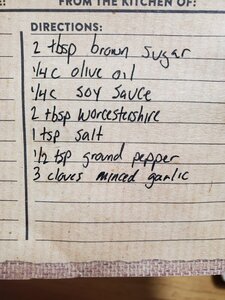 FROM THE KITCHEN OF:
DIRECTIONS:
2 tbsp brown sugar
1/4 c olive oil
1/4c soy sauce
2 tbsp worcestershire
1 tsp salt
1/2 tsp ground pepper
3 cloves minced garlic